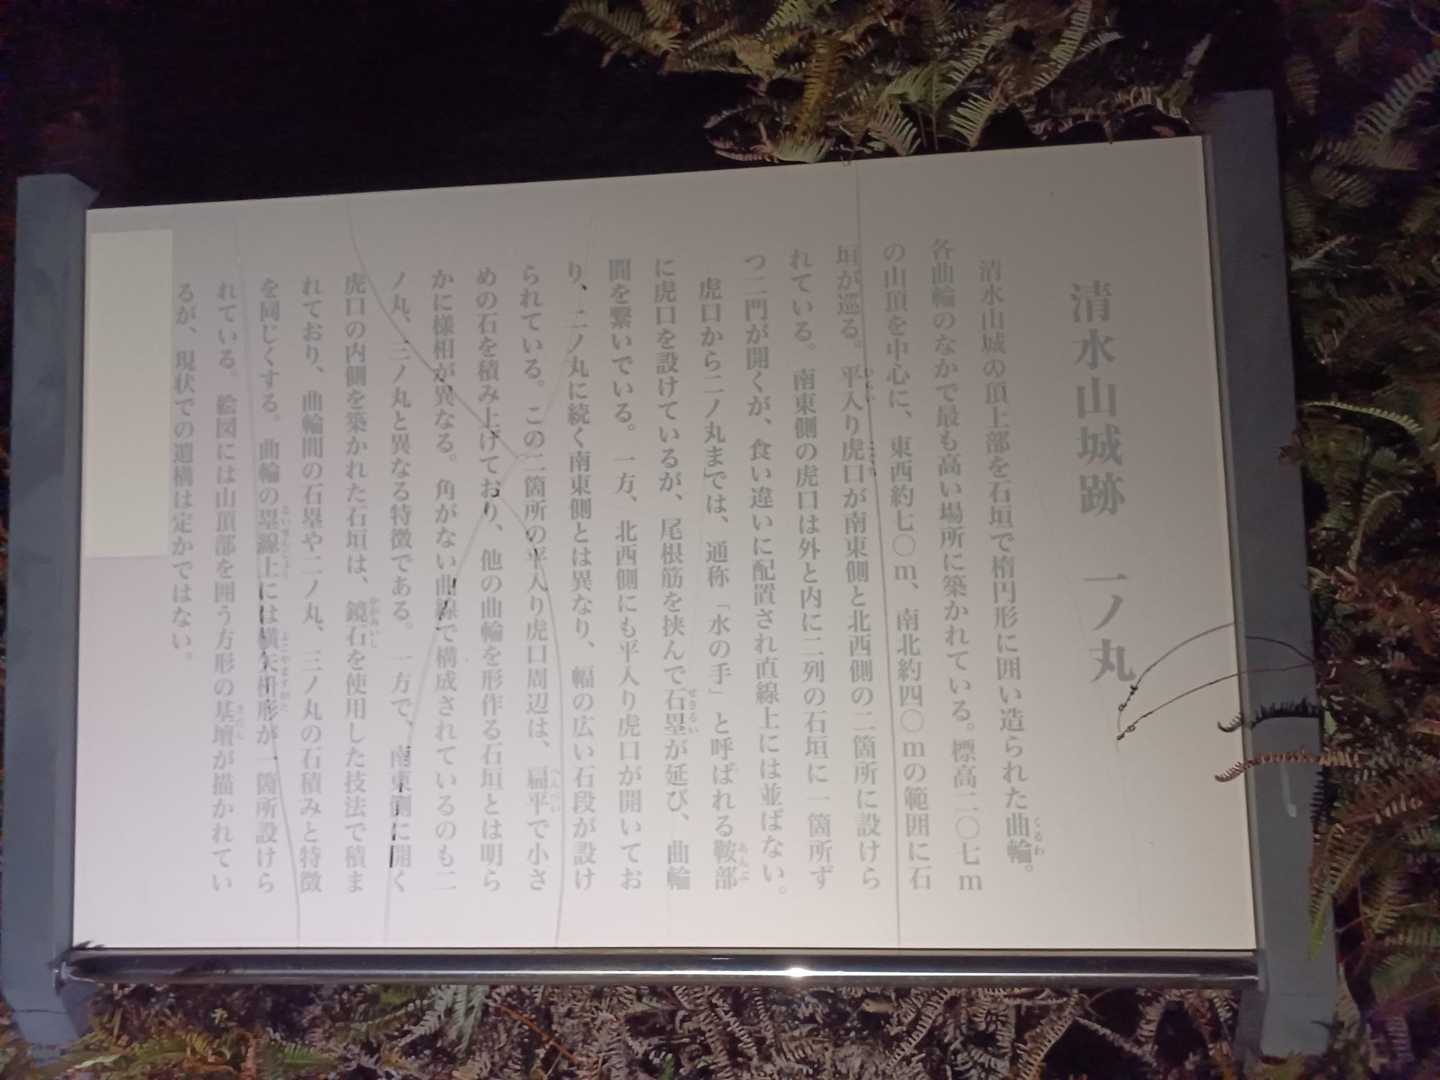 清水山城跡　一ノ丸
清水山城の頂上部を石垣で楕円形に囲い造られた曲輪。
くるわ
各曲輪のなかで最も高い場所に築かれている。標高二〇七ｍ
の山頂を中心に、東西約七〇ｍ、南北約四〇ｍの範囲に石
垣が巡る。平入り虎口が南東側と北西側の二箇所に設けら
れている。南東側の虎口は外と内に二列の石垣に一箇所ず
つ二門が開くが、食い違いに配置され直線上には並ばない。
虎口から二ノ丸までは、通称「水の手」と呼ばれる鞍部
あんぶ
に虎口を設けているが、尾根筋を挟んで石塁が延び、曲輪
せきるい
間を繋いでいる。一方、北西側にも平入り虎口が開いてお
り、二ノ丸に続く南東側とは異なり、幅の広い石段が設け
られている。この二箇所の平入り虎口周辺は、扁平で小さ
へんぺい
めの石を積み上げており、他の曲輪を形作る石垣とは明ら
かに様相が異なる。角がない曲線で構成されているのも二
ノ丸、三ノ丸と異なる特徴である。一方で、南東側に開く
虎口の内側を築かれた石垣は、鏡石を使用した技法で積ま
かがみいし
れており、曲輪間の石塁や二ノ丸、三ノ丸の石積みと特徴
を同じくする。曲輪の塁線上には横矢枡形が一箇所設けら
るいせんじょう
よこやますがた
れている。絵図には山頂部を囲う方形の基壇が描かれてい
きだん
るが、現状での遺構は定かではない。